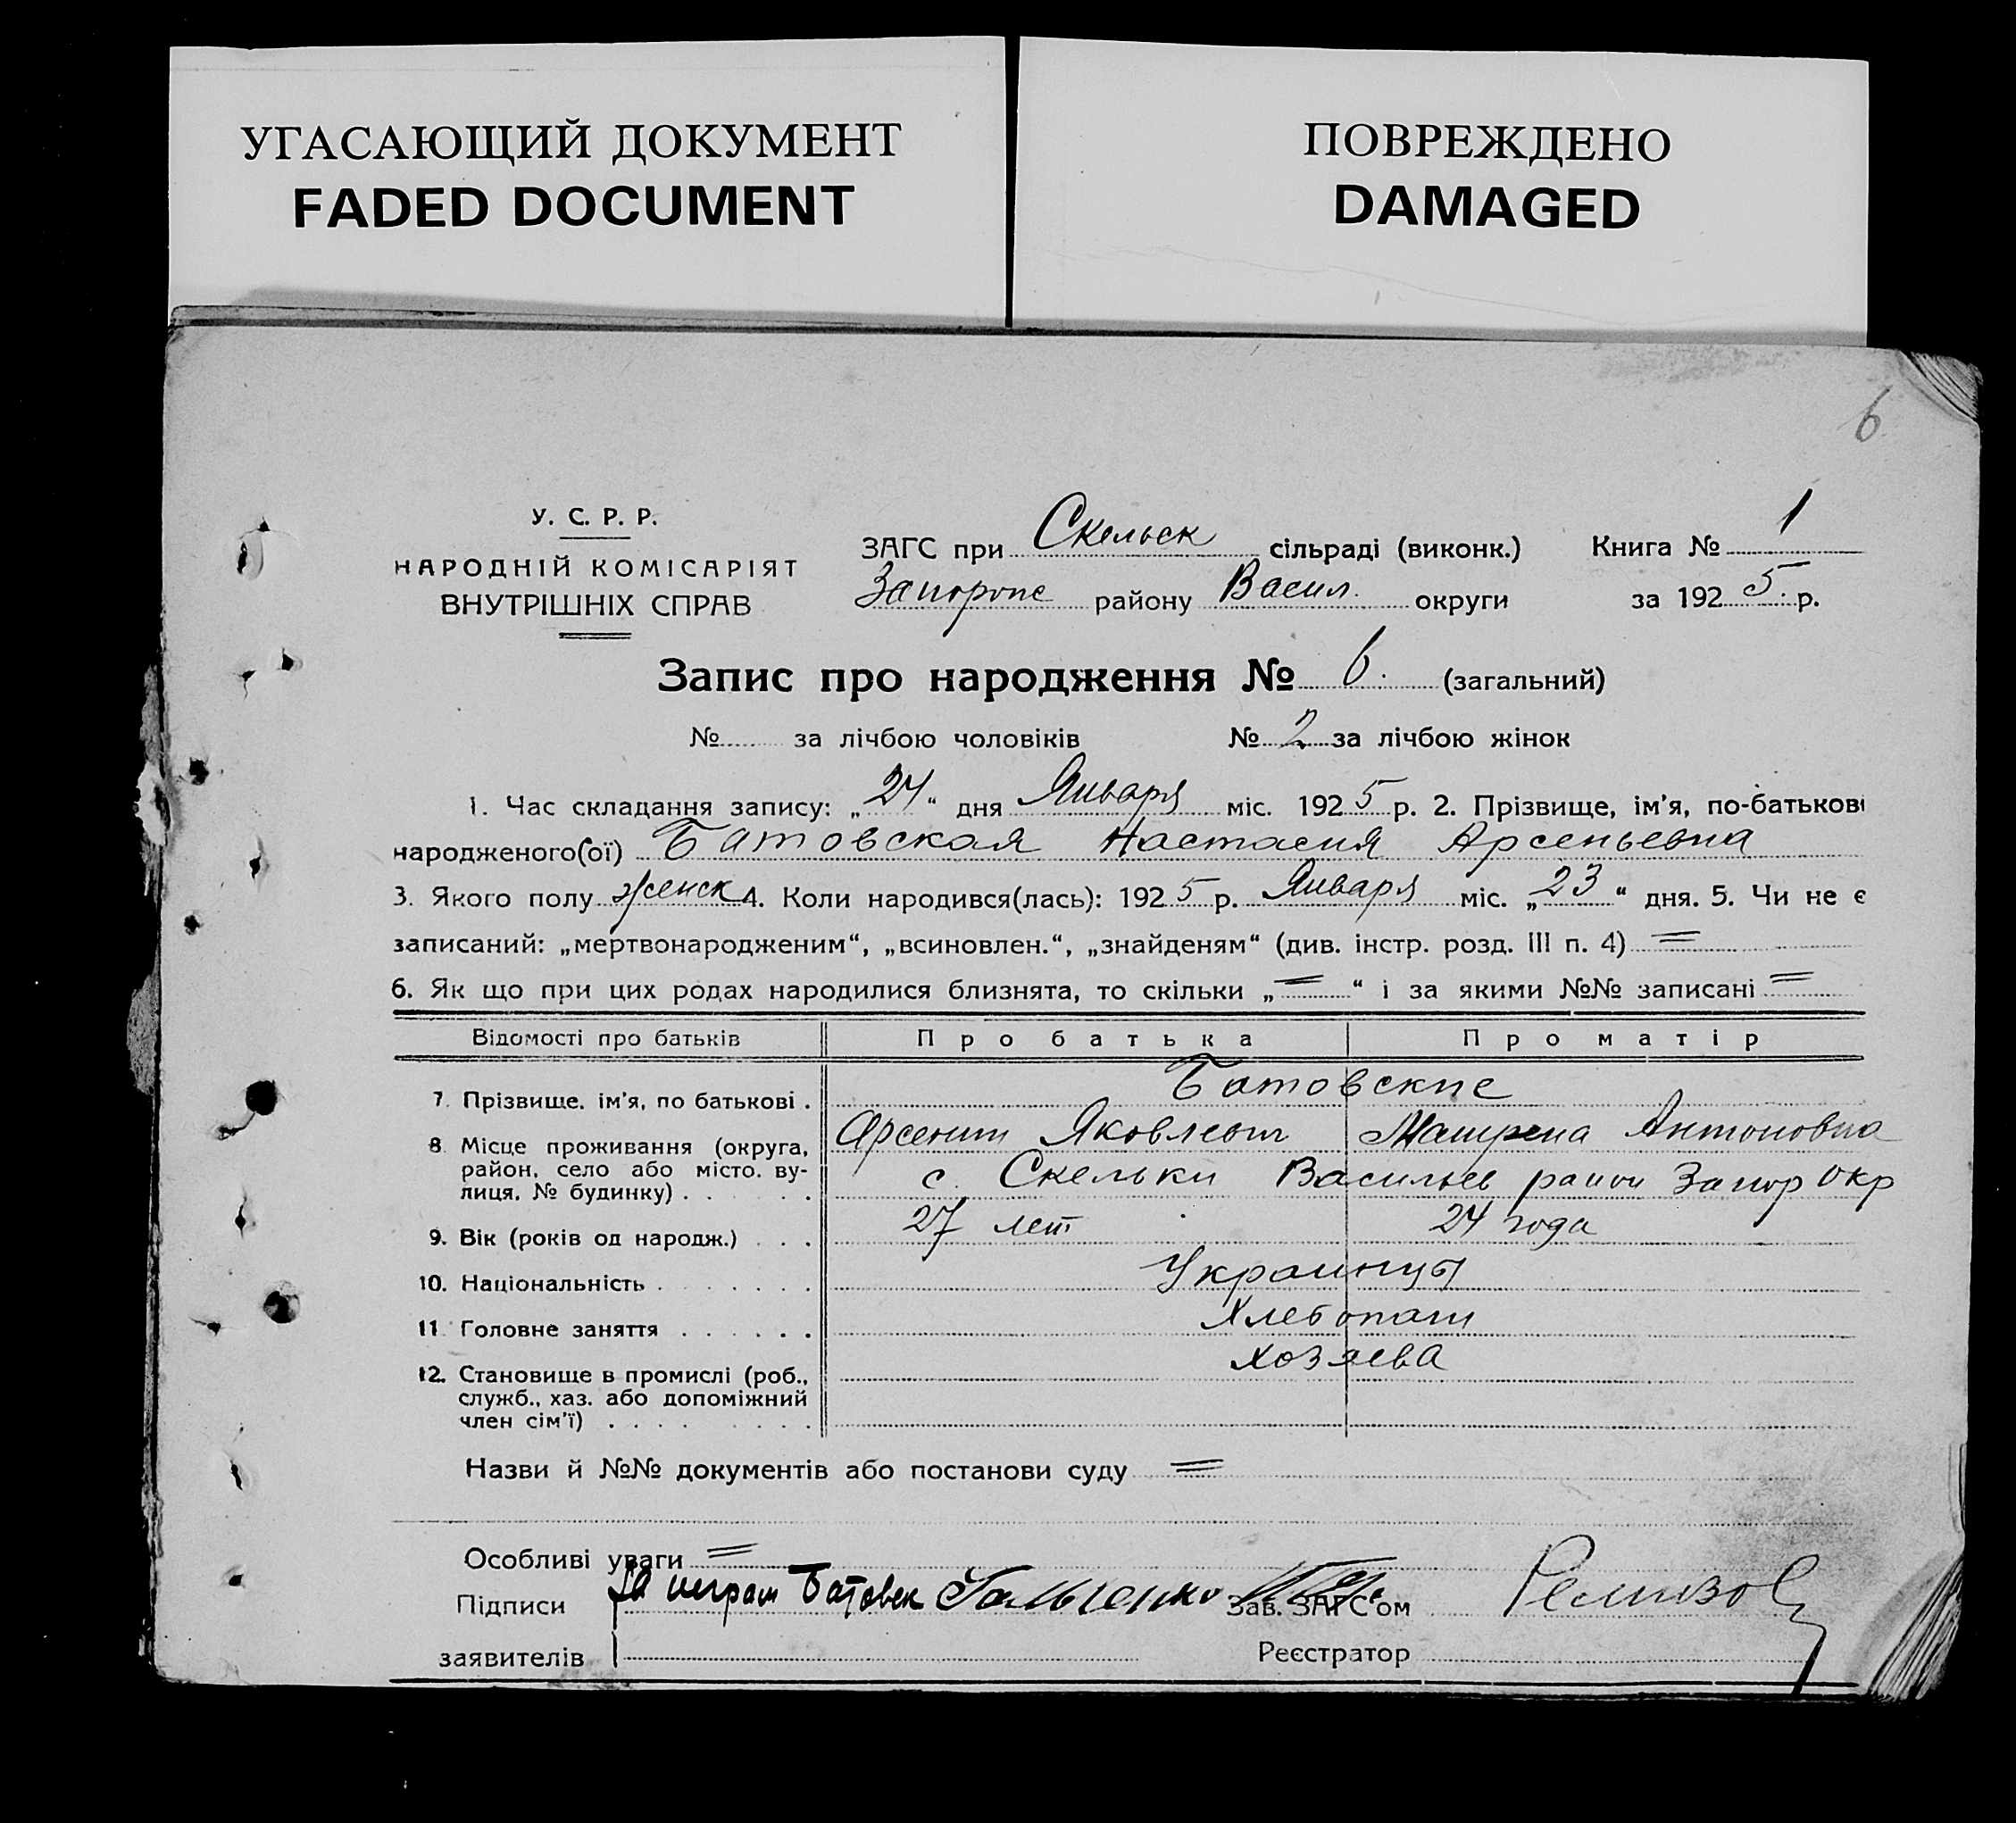 УГАСАЮЩИЙ ДОКУМЕНТ
FADED DOCUMENT
ПОВРЕЖДЕНО
DAMAGED
6
У. С. Р. Р.
НАРОДНІЙ КОМІСАРІЯТ
ВНУТРІШНІХ СПРАВ
ЗАГС при Скельск сільраді (виконк.) Книга № 1
району Васил. округи за 192 5 р.
Запис про народження № 6. (загальний)
№ за лічбою чоловіків № 2 за лічбою жінок
1. Час складання запису: „24“ дня Января міс. 192 5 р. 2. Прізвище, ім'я, по-батькові
народженого(ої) Батовская Настасия Арсеньевна
3. Якого полу женск 4. Коли народився(лась): 192 5 р. Января міс. „23“ дня. 5. Чи не є
записаний: „мертвонародженим“, „всиновлен.“, „знайденям“ (див. інстр. розд. III п. 4) =
6. Як що при цих родах народилися близнята, то скільки „=“ і за якими №№ записані =
Відомості про батьків Про батька Про матір
Батовские
7. Прізвище, ім'я, по батькові . Арсений Яковлевич Мотрена Антоновна
8. Місце проживання (округа,
район, село або місто, ву-
лиця, № будинку) . . . . с. Скельки Васильев район Запор окр
9. Вік (років од народж.) . . . 27 лет 24 года
10. Національність . . . . . . . Украинцы
11. Головне заняття . . . . . . Хлебопаш
12. Становище в промислі (роб.,
служб., хаз. або допоміжний
член сім'ї) . . . . . . . . хозяева
Назви й №№ документів або постанови суду =
Особливі уваги =
Підписи За неграм Батовск Зав. ЗАГС'ом Ремизов
заявителів Реєстратор